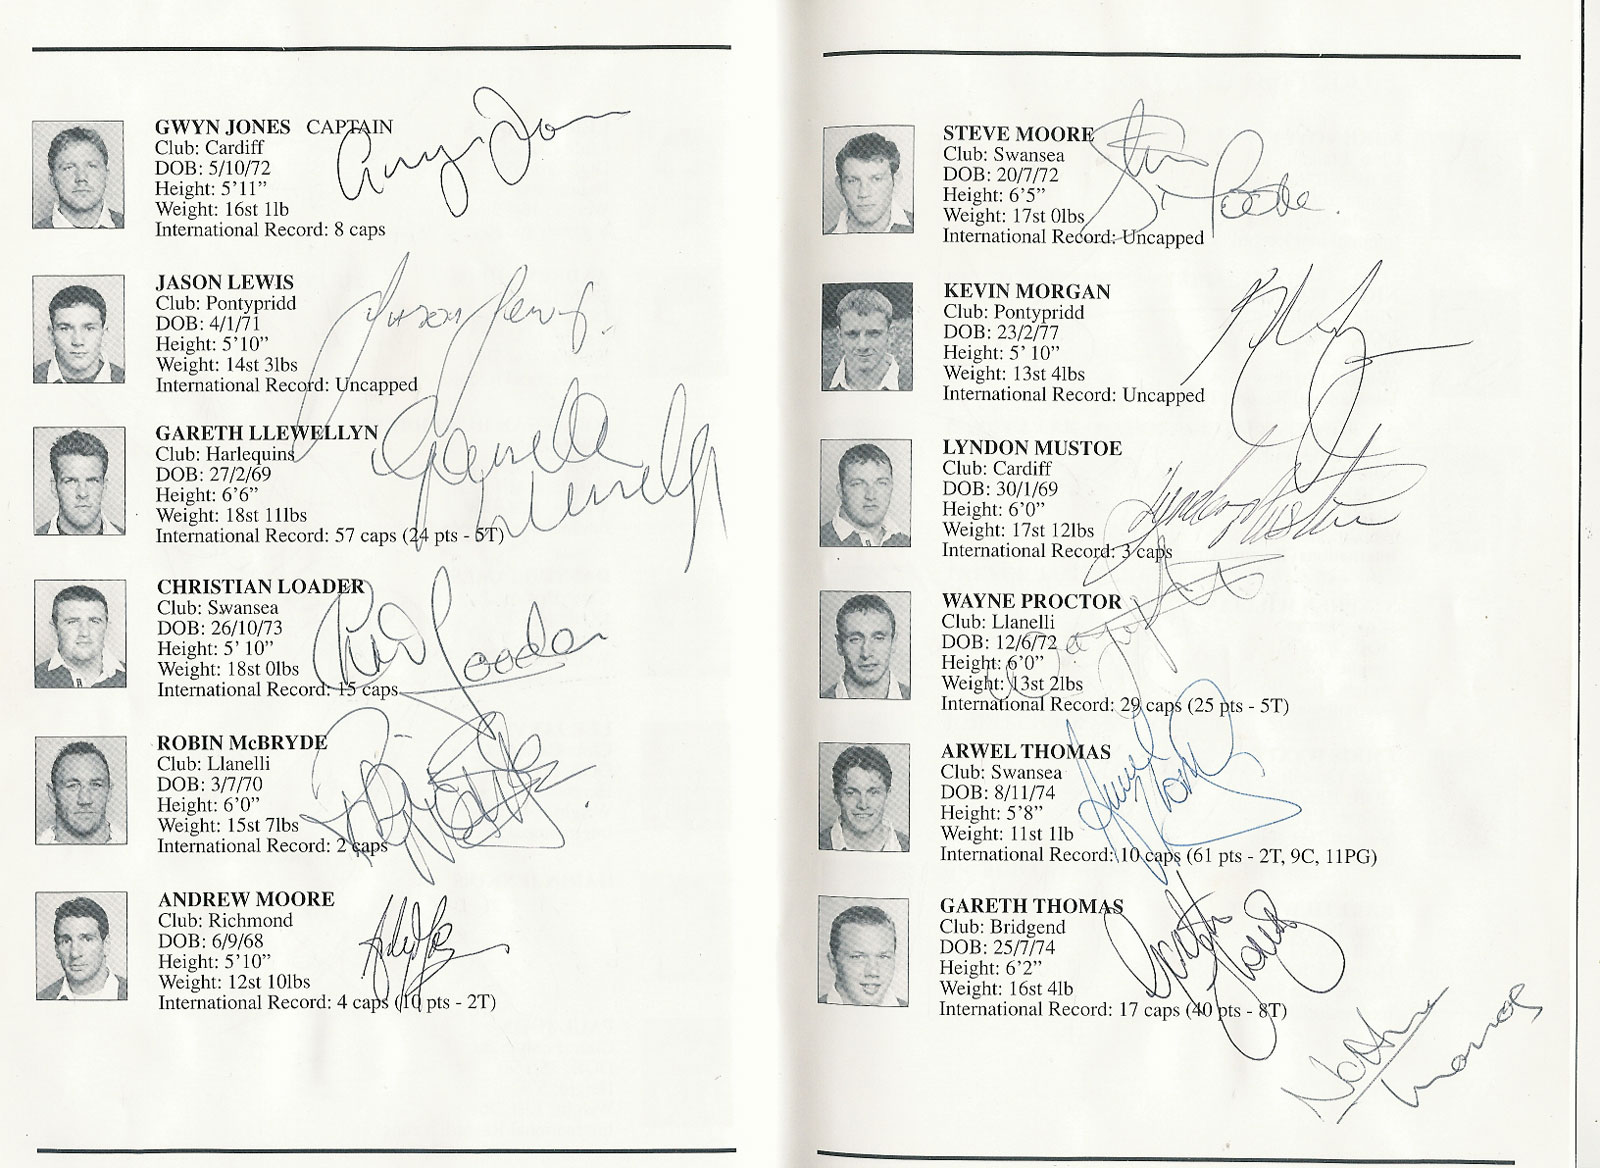 GWYN JONES CAPTAIN
Club: Cardiff
DOB: 5/10/72
Height: 5'11”
Weight: 16st 1lb
International Record: 8 caps
Gwyn Jones
JASON LEWIS
Club: Pontypridd
DOB: 4/1/71
Height: 5'10”
Weight: 14st 3lbs
International Record: Uncapped
Jason Lewis.
GARETH LLEWELLYN
Club: Harlequins
DOB: 27/2/69
Height: 6'6”
Weight: 18st 11lbs
International Record: 57 caps (24 pts - 5T)
CHRISTIAN LOADER
Club: Swansea
DOB: 26/10/73
Height: 5' 10”
Weight: 18st 0lbs
International Record: 15 caps
Loader
ROBIN McBRYDE
Club: Llanelli
DOB: 3/7/70
Height: 6'0”
Weight: 15st 7lbs
International Record: 2 caps
ANDREW MOORE
Club: Richmond
DOB: 6/9/68
Height: 5'10”
Weight: 12st 10lbs
International Record: 4 caps (10 pts - 2T)
STEVE MOORE
Club: Swansea
DOB: 20/7/72
Height: 6'5”
Weight: 17st 0lbs
International Record: Uncapped
Steve Moore.
KEVIN MORGAN
Club: Pontypridd
DOB: 23/2/77
Height: 5' 10”
Weight: 13st 4lbs
International Record: Uncapped
LYNDON MUSTOE
Club: Cardiff
DOB: 30/1/69
Height: 6'0”
Weight: 17st 12lbs
International Record: 3 caps
Lyndon Mustoe
WAYNE PROCTOR
Club: Llanelli
DOB: 12/6/72
Height: 6'0”
Weight: 13st 2lbs
International Record: 29 caps (25 pts - 5T)
ARWEL THOMAS
Club: Swansea
DOB: 8/11/74
Height: 5'8”
Weight: 11st 1lb
International Record: 10 caps (61 pts - 2T, 9C, 11PG)
Arwel Thomas
GARETH THOMAS
Club: Bridgend
DOB: 25/7/74
Height: 6'2”
Weight: 16st 4lb
International Record: 17 caps (40 pts - 8T)
Gareth Thomas